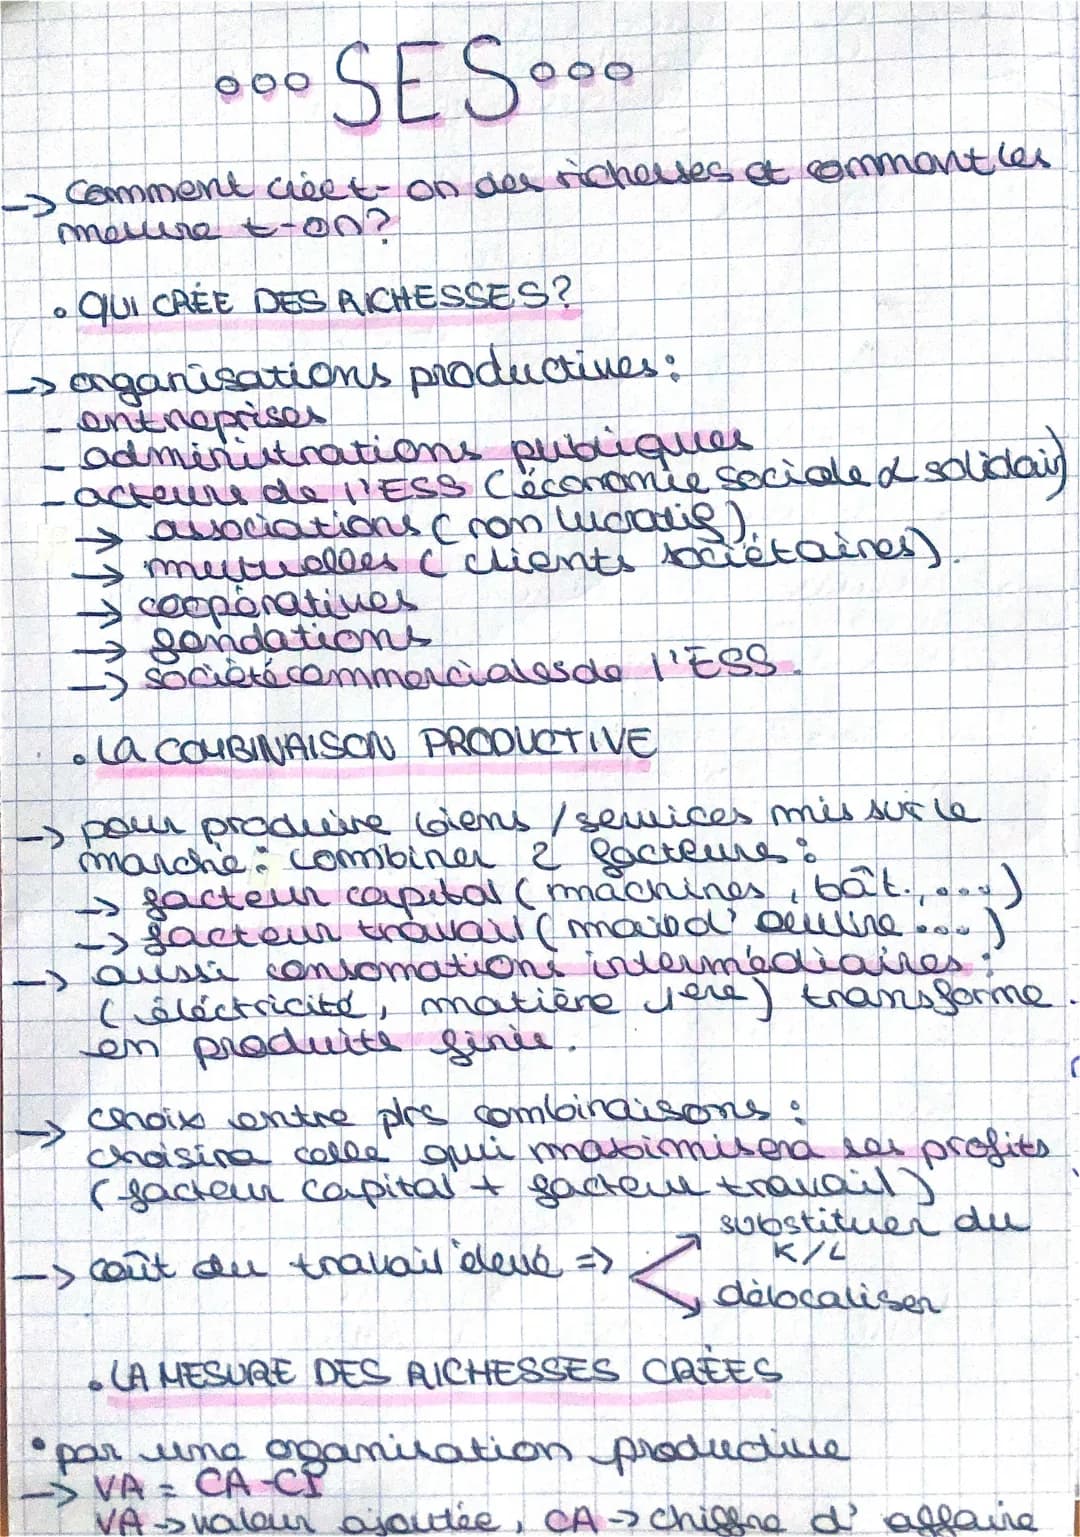 °°° SES °°°
-> Comment crée t-on des richesses et comment les
mesure t-on?
• QUI CRÉE DES RICHESSES?
-> organisations productives :
- entreprises
- administrations publiques
- acteurs de l'ESS (économie sociale & solidair)
-> associations (non lucratif)
-> mutuelles (clients sociétaires).
-> coopératives
-> fondations
-> société commerciales de l'ESS.
• LA COMBINAISON PRODUCTIVE
-> pour produire biens / services mis sur le
marché : combiner 2 facteurs :
-> facteur capital (machines, bât., ...)
-> facteur travail (main d'oeuvre ...)
-> aussi consomations intermédiaires :
(éléctricité, matière 1ère) transforme
en produits finis.
-> choix entre plrs combinaisons :
choisira celle qui maximisera ses profits
(facteur capital + facteur travail)
substituer du
K/L
-> coût du travail élevé =>
délocaliser
• LA MESURE DES RICHESSES CRÉES
• par une organisation productive
-> VA = CA-CI
VA -> valeur ajoutée, CA -> chiffre d'affaire